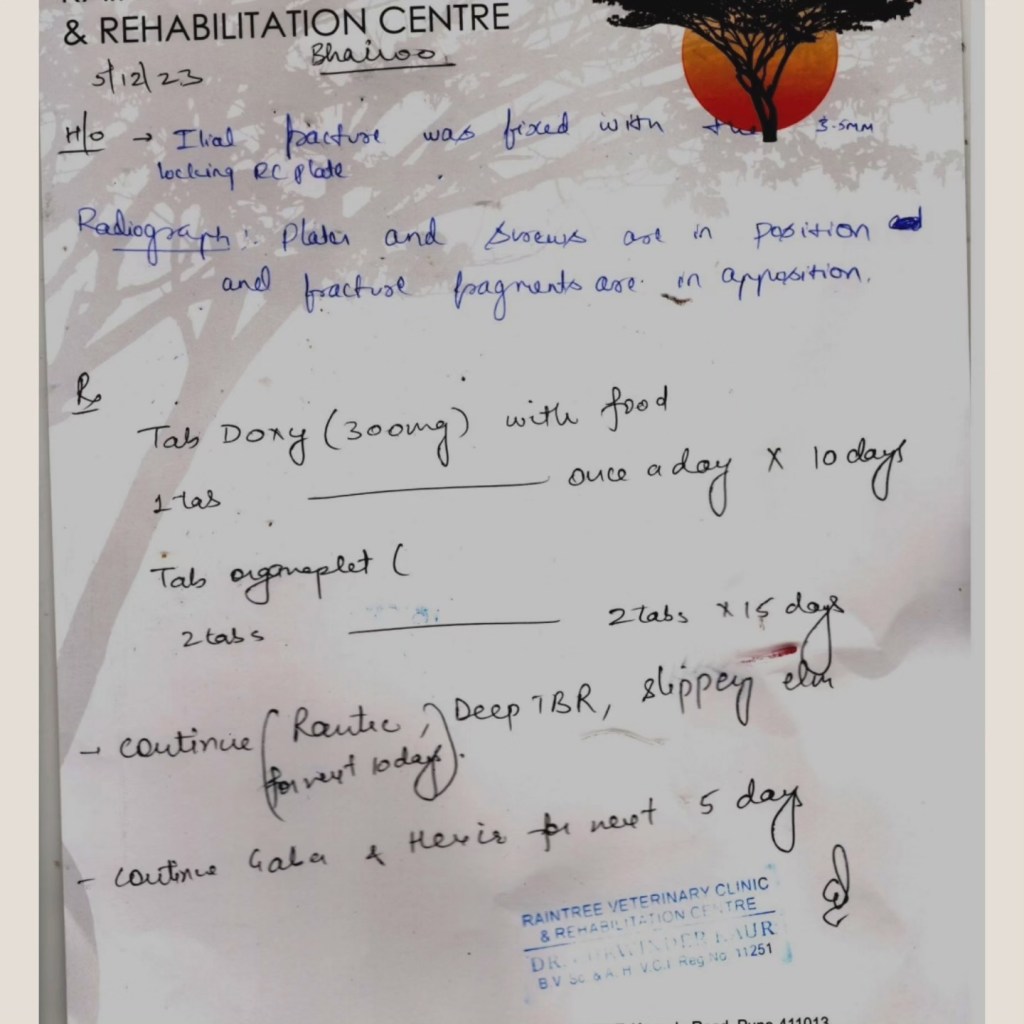 & REHABILITATION CENTRE
Bhairoo
5/12/23
H/o → Ilial fracture was fixed with 3.5MM
locking RC plate
Radiograph: Plates and Screws are in position
and fracture fragments are in apposition.
Rx
Tab Doxy (300mg) with food
1 tab ——— once a day X 10 days
Tab (
2 tabs ——— 2 tabs x 15 days
- continue (Rantec, Deep TBR, slippey elm
for next 10 days).
- continue Gaba & for next 5 days
RAINTREE VETERINARY CLINIC
& REHABILITATION CENTRE
DR. KAUR
B.V.Sc & A.H V.C.I Reg No. 11251
Road, Pune 411013